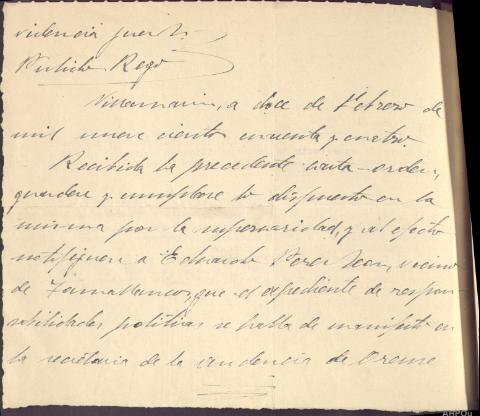 videncia
Pulido Rego
Villamarin, a doce de Febrero de
mil nueve cientos cincuenta y cuatro
Recibida la precedente carta-orden,
guardese y cumplase lo dispuesto en la
misma por la superioridad, y al efecto
notifiquese a Eduardo Perez, vecino
de Tamallancos, que el expediente de respon-
sabilidades politicas se halla de manifiesto en
la secretaria de la audencia de Orense
AHPOu